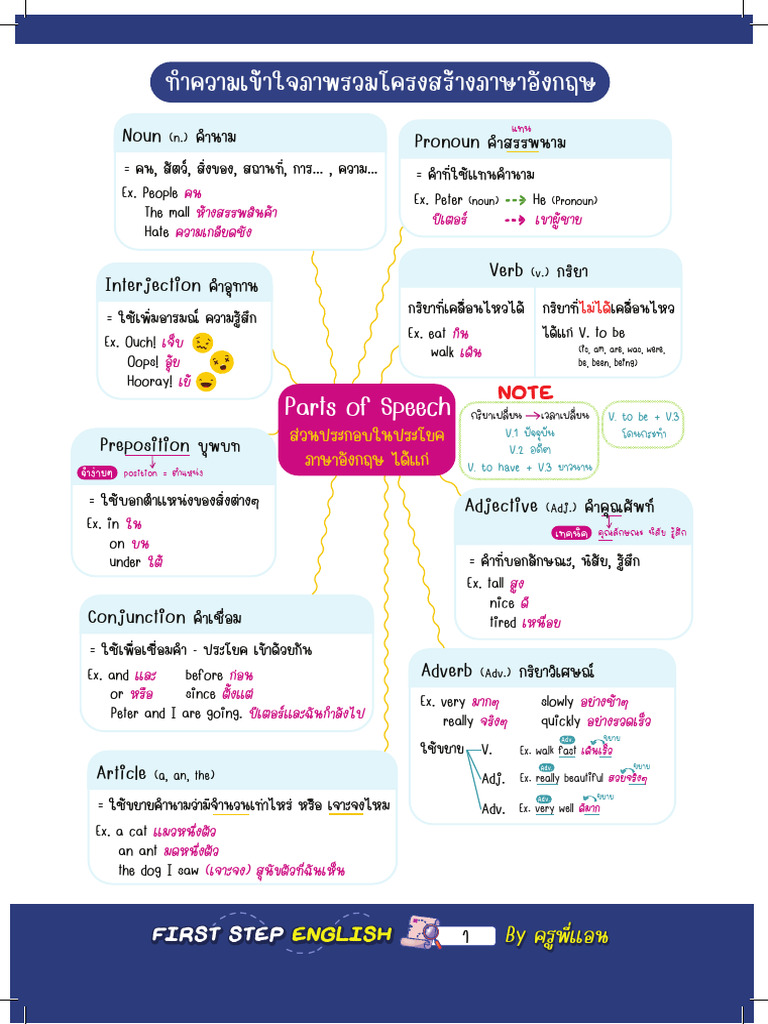 ทำความเข้าใจภาพรวมโครงสร้างภาษาอังกฤษ
Noun (n.) คำนาม
= คน, สัตว์, สิ่งของ, สถานที่, การ... , ความ...
Ex. People คน
The mall ห้างสรรพสินค้า
Hate ความเกลียดชัง
แทน
Pronoun คำสรรพนาม
= คำที่ใช้แทนคำนาม
Ex. Peter (noun) --→ He (Pronoun)
ปีเตอร์ --→ เขาผู้ชาย
Interjection คำอุทาน
= ใช้เพิ่มอารมณ์ ความรู้สึก
Ex. Ouch! เจ็บ
Oops! อุ้ย
Hooray! เย้
Verb (v.) กริยา
กริยาที่เคลื่อนไหวได้
Ex. eat กิน
walk เดิน
กริยาที่ไม่ได้เคลื่อนไหว
ได้แก่ V. to be
(is, am, are, was, were,
be, been, being)
Parts of Speech
ส่วนประกอบในประโยค
ภาษาอังกฤษ ได้แก่
NOTE
กริยาเปลี่ยน → เวลาเปลี่ยน
V.1 ปัจจุบัน
V.2 อดีต
V. to have + V.3 ยาวนาน
V. to be + V.3
โดนกระทำ
Preposition บุพบท
จำง่ายๆ position = ตำแหน่ง
= ใช้บอกตำแหน่งของสิ่งต่างๆ
Ex. in ใน
on บน
under ใต้
Adjective (Adj.) คำคุณศัพท์
เทคนิค คุณลักษณะ นิสัย รู้สึก
= คำที่บอกลักษณะ, นิสัย, รู้สึก
Ex. tall สูง
nice ดี
tired เหนื่อย
Conjunction คำเชื่อม
= ใช้เพื่อเชื่อมคำ - ประโยค เข้าด้วยกัน
Ex. and และ before ก่อน
or หรือ since ตั้งแต่
Peter and I are going. ปีเตอร์และฉันกำลังไป
Adverb (Adv.) กริยาวิเศษณ์
Ex. very มากๆ slowly อย่างช้าๆ
really จริงๆ quickly อย่างรวดเร็ว
Adv. ขยาย
ใช้ขยาย V. Ex. walk fast เดินเร็ว
Adv. ขยาย
Adj. Ex. really beautiful สวยจริงๆ
Adv. ขยาย
Adv. Ex. very well ดีมาก
Article (a, an, the)
= ใช้ขยายคำนามว่ามีจำนวนเท่าไหร่ หรือ เจาะจงไหม
Ex. a cat แมวหนึ่งตัว
an ant มดหนึ่งตัว
the dog I saw (เจาะจง) สุนัขตัวที่ฉันเห็น
FIRST STEP ENGLISH 1 By ครูพี่แอน